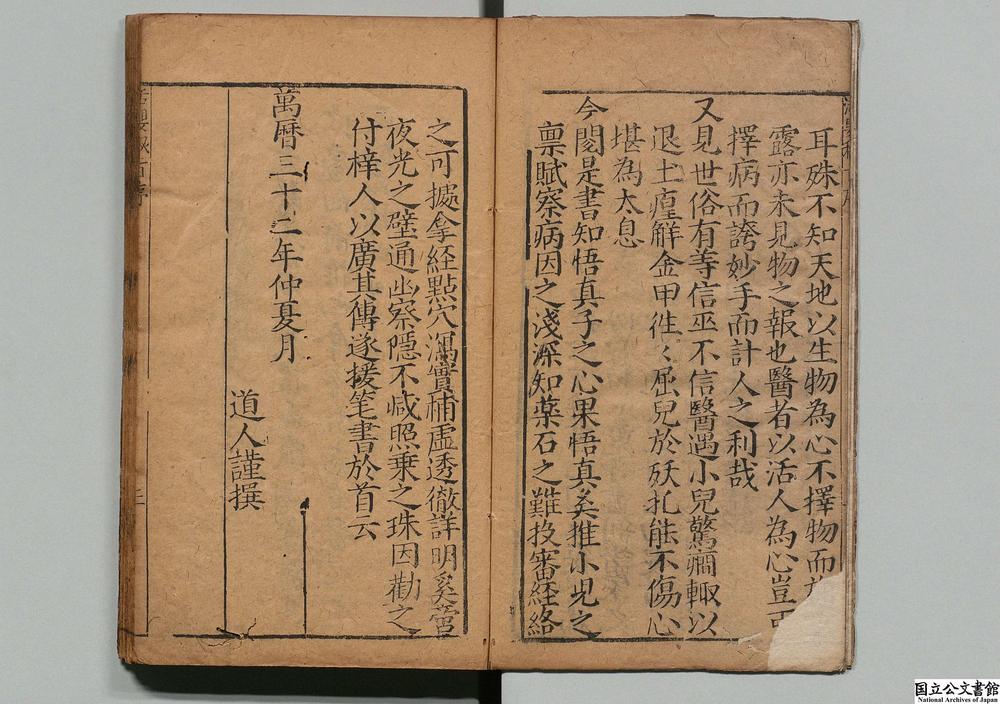 耳殊不知天地以生物為心不擇物而
露亦未見物之報也醫者以活人為心豈可
擇病而誇妙手而計人之利哉
又見世俗有等信巫不信醫遇小兒驚癇輙以
退土瘽解金甲徃〻屈兒於殀扎能不傷心
堪為太息
今閱是書知悟真子之心果悟真矣推小兒之
禀賦察病因之淺深知薬石之難投審経絡
之可據拿経點穴瀉實補虛透徹詳明奚啻
夜光之璧通幽察隱不减照乗之珠因勸之
付梓人以廣其傳遂援笔書於首云
萬曆三十二年仲夏月
道人謹撰
三
国立公文書館
National Archives of Japan